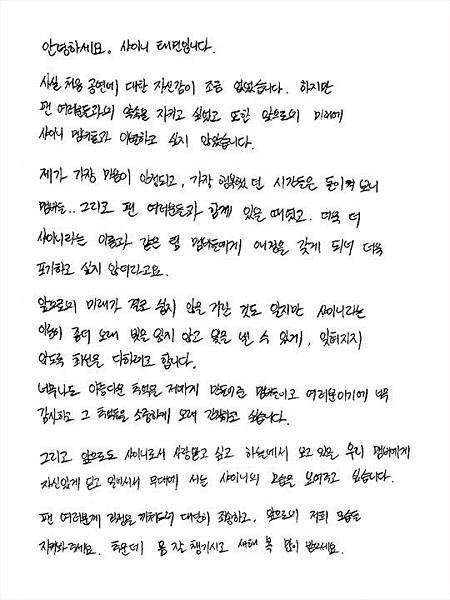 안녕하세요. 샤이니 태민입니다.
사실 처음 공연에 대한 자신감이 조금 없었습니다. 하지만
팬 여러분들과의 약속을 지키고 싶었고 또한 앞으로의 미래에
샤이니 멤버들과 이별하고 싶지 않았습니다.
제가 가장 마음이 안정되고, 가장 행복했던 시간들은 돌이켜 보니
멤버들.. 그리고 팬 여러분들과 함께 있을 때였고. 더욱 더
샤이니라는 이름과 같은 팀 멤버들에게 애정을 갖게 되어 더욱
포기하고 싶지 않더라고요.
앞으로의 미래가 결코 쉽지 않을 거란 것도 알지만 샤이니라는
이름이 좀더 오래 빛을 잃지 않고 빛을 낼 수 있게, 잊혀지지
않도록 최선을 다하려고 합니다.
너무나도 아름다운 추억을 저에게 만들어준 멤버들이고 여러분이기에 너무
감사하고 그 추억들을 소중하게 오래 간직하고 싶습니다.
그리고 앞으로도 샤이니로서 사랑받고 싶고 하늘에서 보고 있을 우리 멤버에게
자신있게 딛고 일어서서 무대에 서는 샤이니의 모습을 보여주고 싶습니다.
팬 여러분께 걱정을 끼쳐드려 대단히 죄송하고, 앞으로의 저희 모습을
지켜봐주세요. 추운데 몸 잘 챙기시고 새해 복 많이 받으세요.